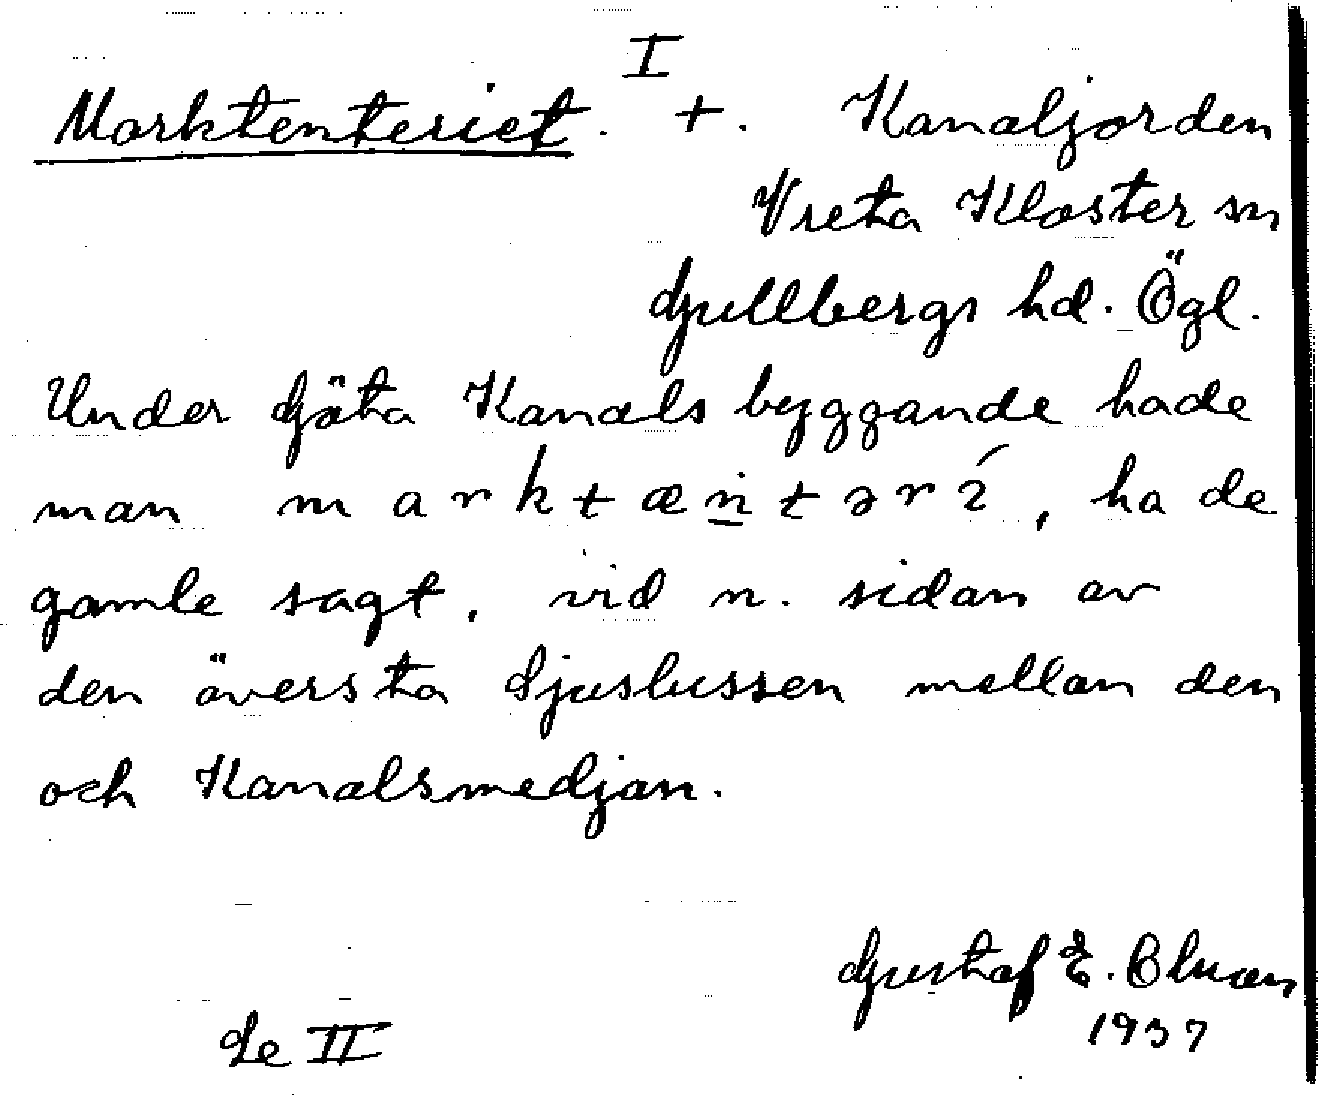 I
Marktenteriet. +. Kanaljorden
Vreta Kloster sn
Gullbergs hd. Ögl.
Under Göta Kanals byggande hade
man marktæṅtərí, ha de
gamle sagt, vid n. sidan av
den översta Sjuslussen mellan den
och Kanalsmedjan.
Gustaf E.
1937
Se II